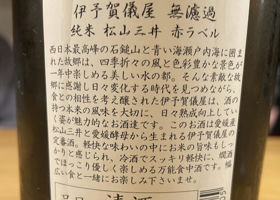 伊予賀儀屋 無濾過
純米 松山三井 赤ラベル
西日本最高峰の石鎚山と青い海瀬戸内海に囲ま
れた故郷は、四季折々の風と色彩豊かな景色が
一年中楽しめる美しい水の都。そんな素敵な故
郷に感謝し日々変化する時代を見つめながら、
食との相性を考え醸された伊予賀儀屋は、酒の
持つ本来の風味を大切に、日々熟成向上してい
く姿が魅力的なお酒達です。このお酒は愛媛産
松山三井と愛媛酵母から生まれる伊予賀儀屋の
定番酒。軽快な味わいの中にお米の旨味もしっ
かりと感じられ、冷酒でスッキリ軽快に、燗酒
でほっこり優しく楽しめる万能食中酒です。幅
広い食と一緒にお楽しみ下さいませ。
品目 清酒